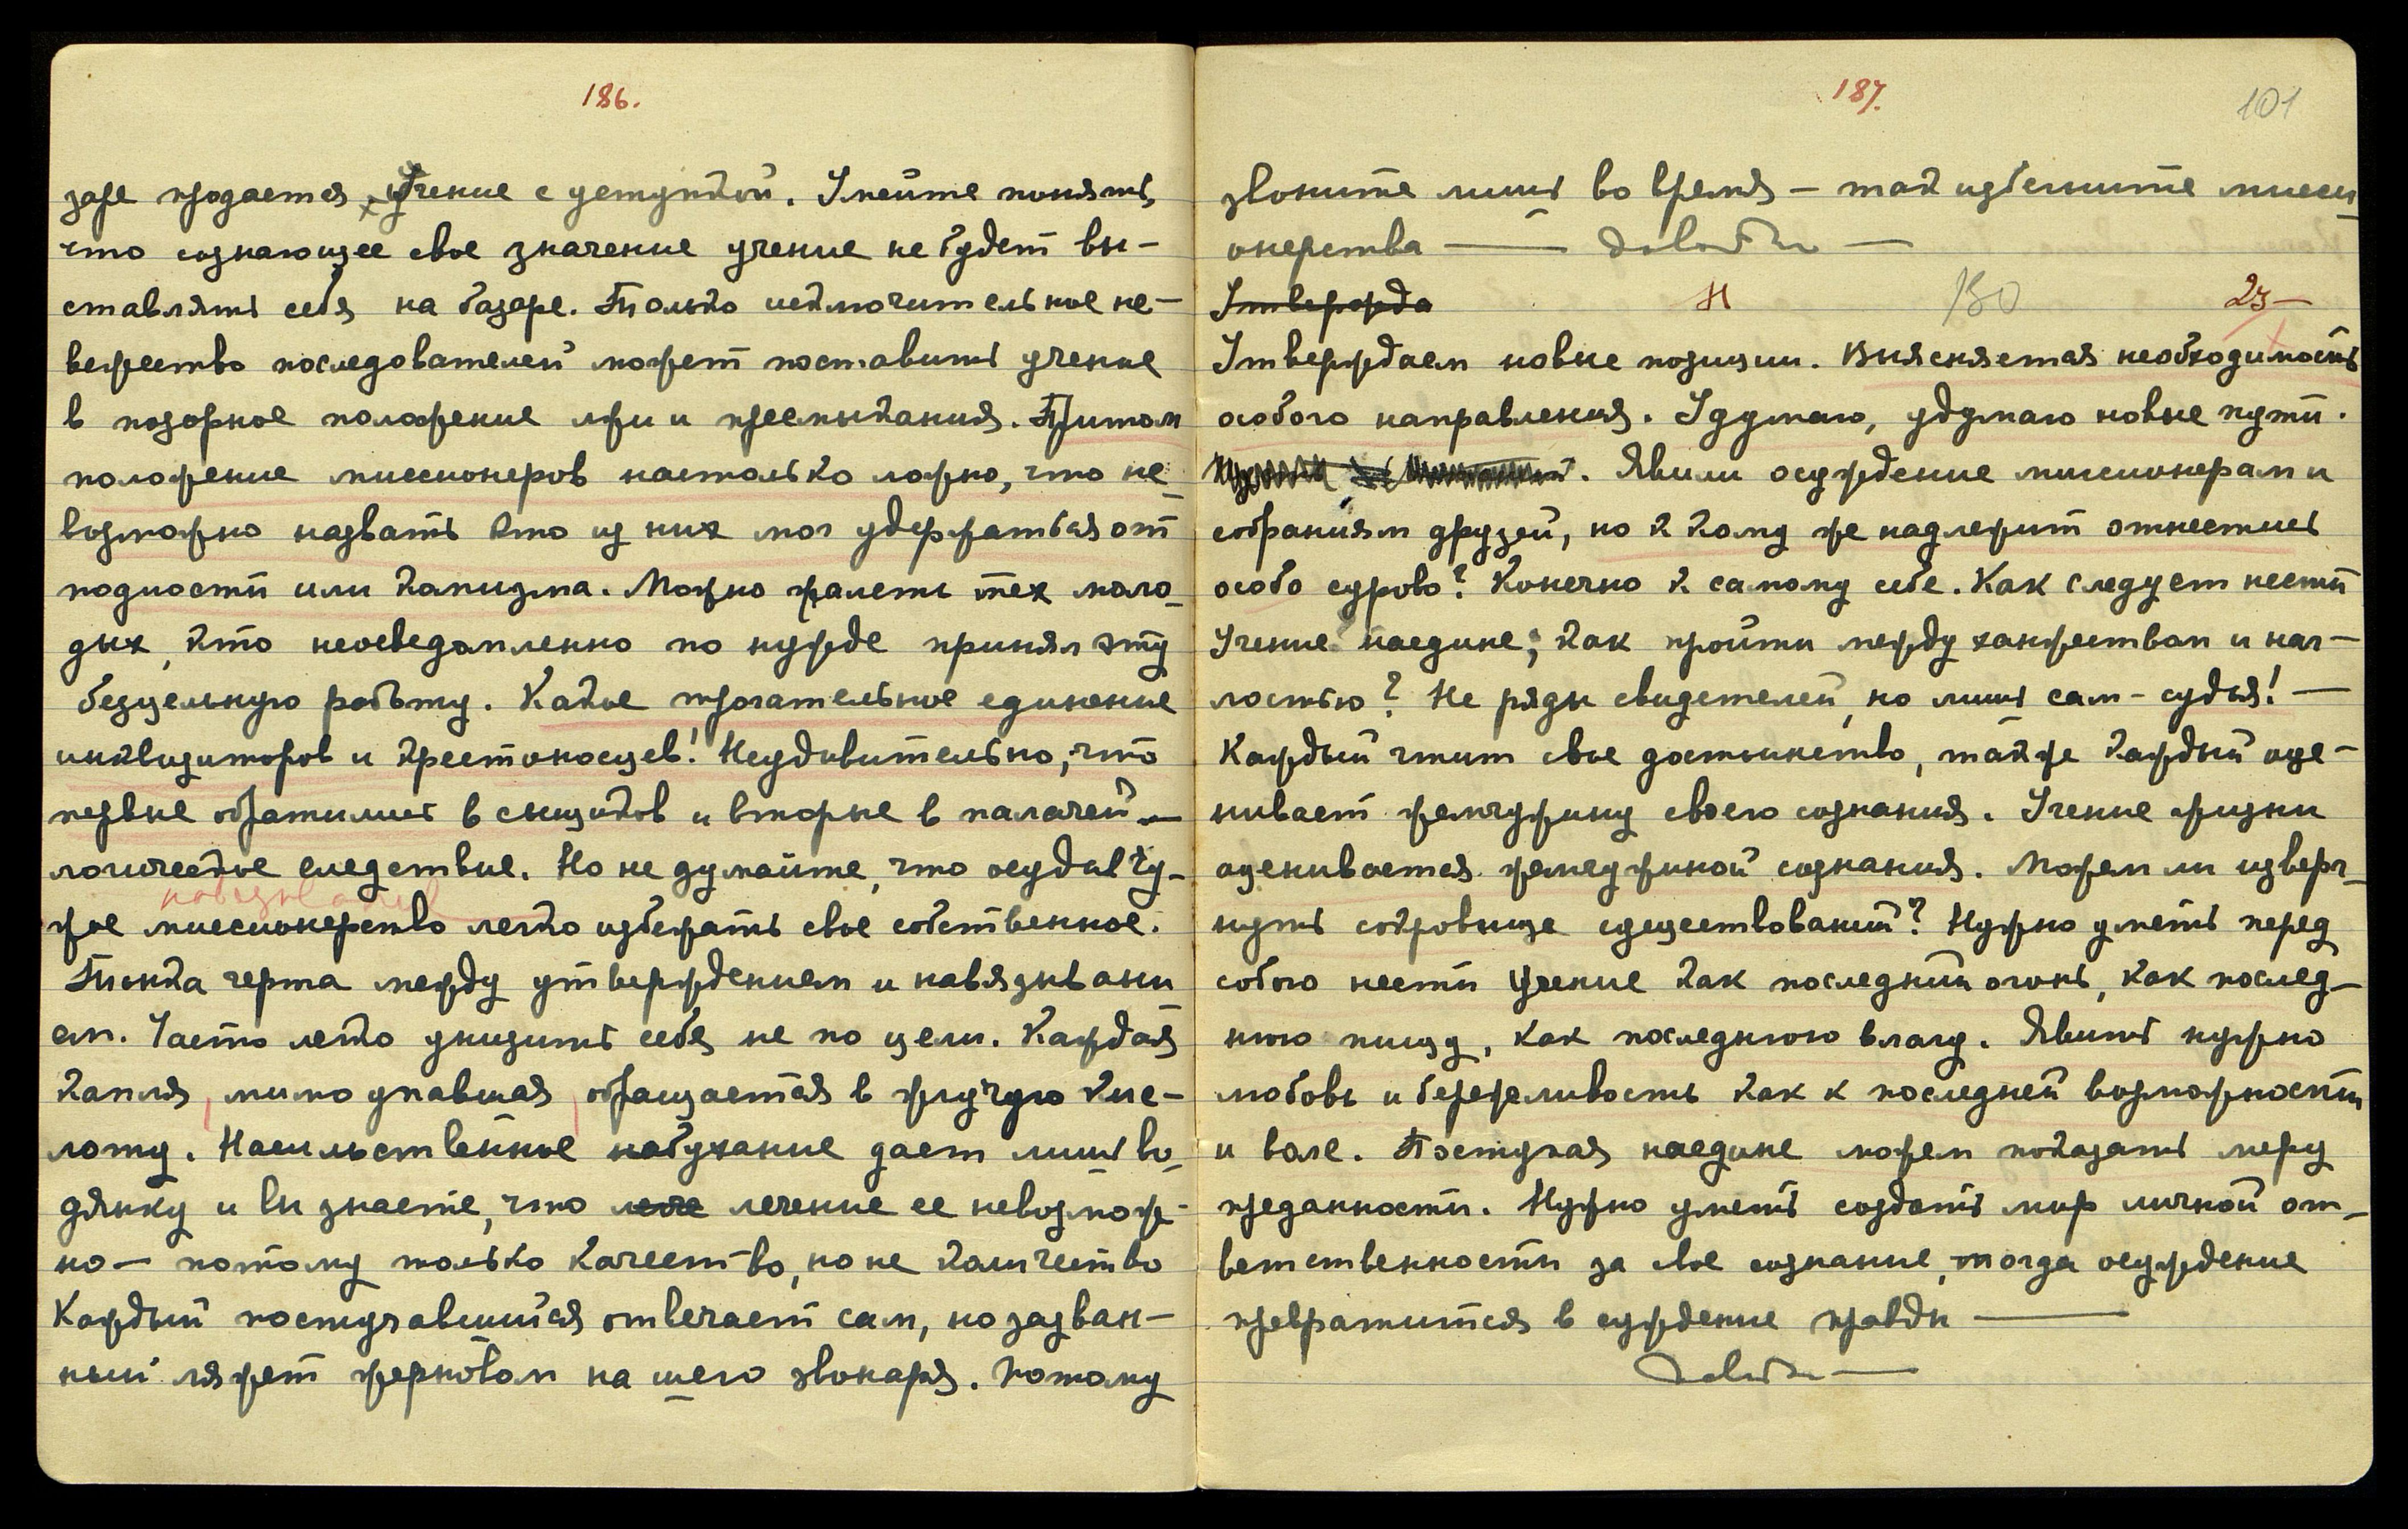 186.
заре продается Учение с уступкой. Умейте понять,
что сознающее свое значение учение не будет вы-
ставлять себя на базаре. Только исключительное не-
вежество последователей может поставить учение
в позорное положение лжи и пресмыкания. Притом
положение миссионеров настолько ложно, что не-
возможно назвать кто из них мог удержаться от
подлости или комизма. Можно жалеть тех моло-
дых, кто неосведомленно по нужде принял эту
безцельную работу. Какое трогательное единение
инквизиторов и крестоносцев! Неудивительно, что
первые обратились в сыщиков и вторые в палачей —
логическое следствие. Но не думайте, что осудив чу-
навязывание
жое миссионерство легко избежать свое собственное.
Тонка черта между утверждением и навязывани
ем. Часто легко унизить себя не по цели. Каждая
капля, мимо упавшая, обращается в жгучую кис-
лоту. Насильственное набухание дает лишь во-
дянку и вы знаете, что лече лечение ее невозмож-
но — потому только качество, но не количество
Каждый постучавшийся отвечает сам, но зазван-
ный ляжет жерновом на шею звонаря. Потому
187.
101
звоните лишь во время — так избегните мисси-
онерства ——
Утвержда
H 150 23—
Утверждаем новые позиции. Выясняется необходимость
особого направления. Удумаю, удумаю новые пути.
Явили осуждение миссионерам и
собраниям друзей, но к кому же надлежит отнестись
особо сурово? Конечно к самому себе. Как следует нести
Учение наедине; как пройти между ханжеством и наг-
лостью? Не ряды свидетелей, но лишь сам-судья! —
Каждый чтит свое достоинство, также каждый оце-
нивает жемчужину своего сознания. Учение жизни
оценивается жемчужиной сознания. Можем ли изверг-
нуть сокровище существований? Нужно уметь перед
собою нести Учение как последний огонь, как послед-
нюю пищу, как последнюю влагу. Явить нужно
любовь и бережливость как к последней возможности
и воле. Поступая наедине можем показать меру
преданности. Нужно уметь создать мир личной от-
ветственности за свое сознание, тогда осуждение
превратится в суждение правды ——